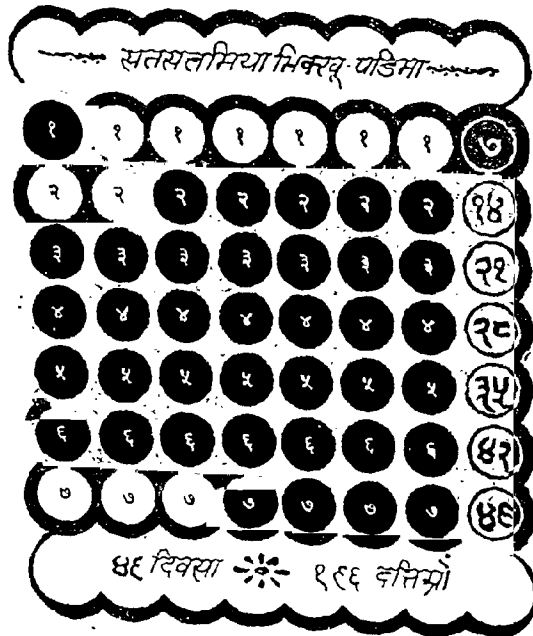 सतसत्तमिया भिक्खू पडिमा
१ १ १ १ १ १ १ ७
२ २ २ २ २ २ २ १४
३ ३ ३ ३ ३ ३ ३ २१
४ ४ ४ ४ ४ ४ ४ २८
५ ५ ५ ५ ५ ५ ५ ३५
६ ६ ६ ६ ६ ६ ६ ४२
७ ७ ७ ७ ७ ७ ७ ४९
४९ दिवसा १९६ दत्तिओं